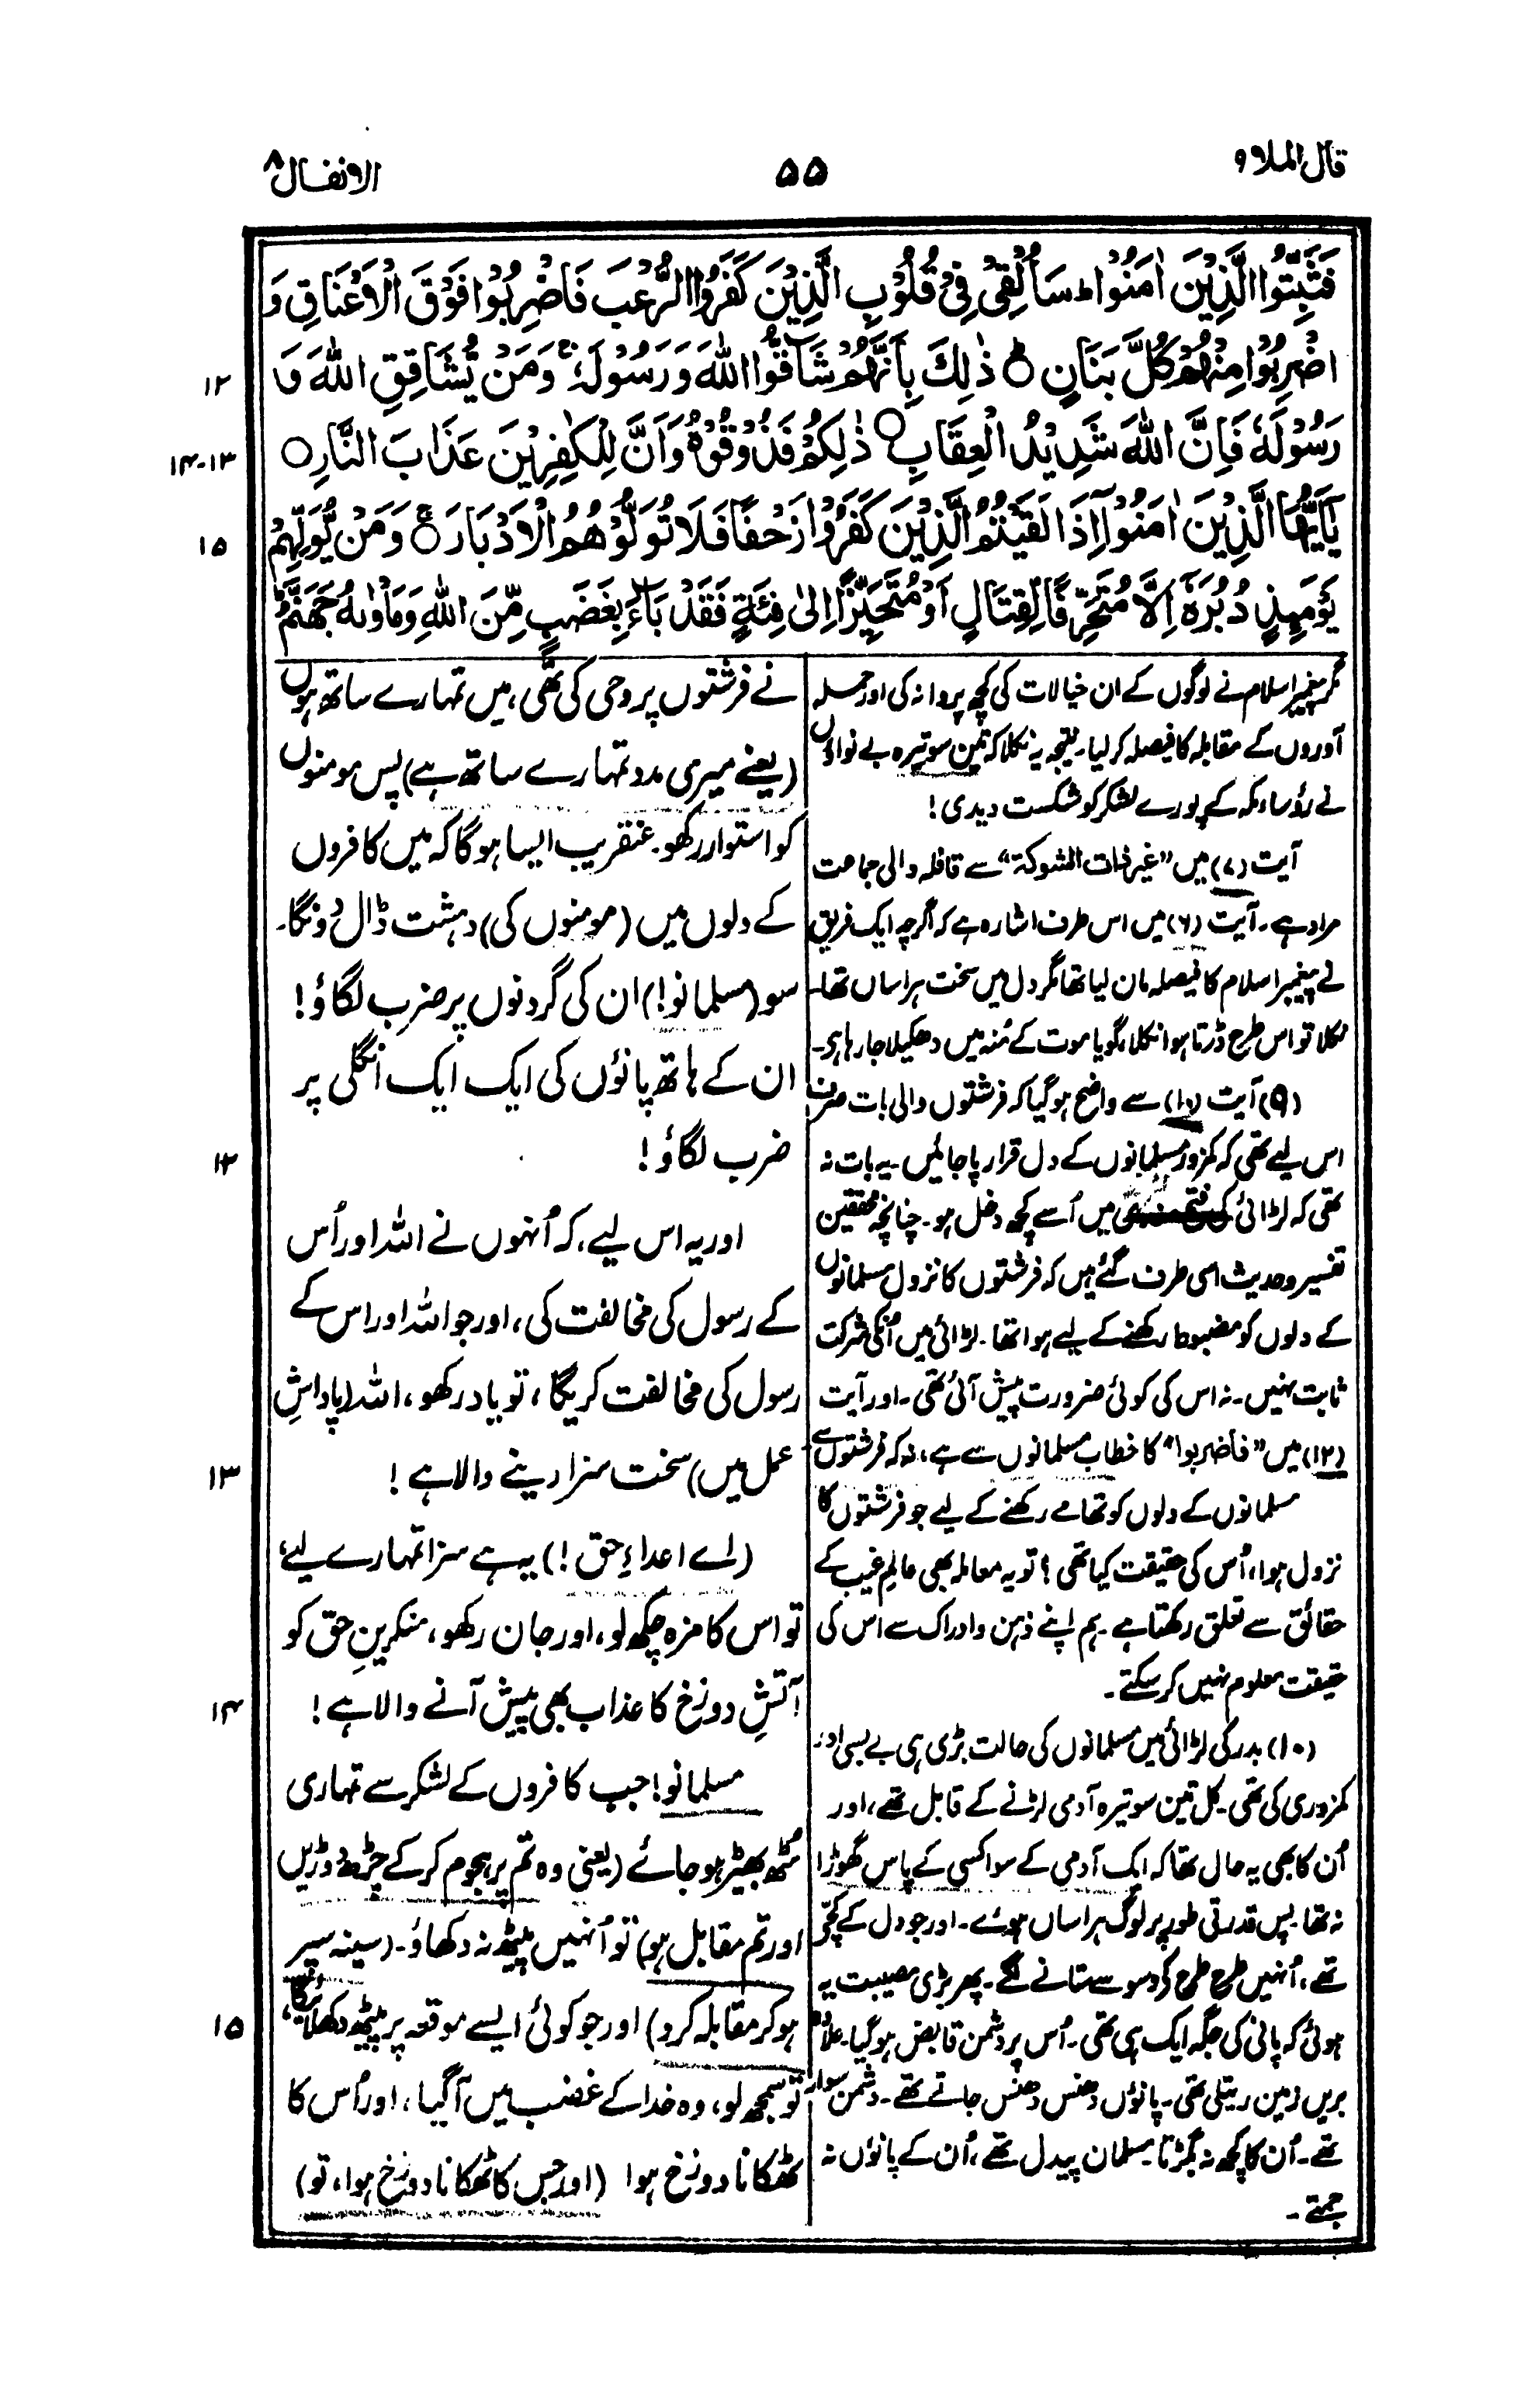 قال الملا ۹
۵۵
الانفال ۸
فَثَبِّتُوا الَّذِيْنَ اٰمَنُوْا ؕ سَاُلْقِيْ فِيْ قُلُوْبِ الَّذِيْنَ كَفَرُوا الرُّعْبَ فَاضْرِبُوْا فَوْقَ الْاَعْنَاقِ وَ
اضْرِبُوْا مِنْهُمْ كُلَّ بَنَانٍ ۝ ذٰلِكَ بِاَنَّهُمْ شَآقُّوا اللّٰهَ وَرَسُوْلَهٗ ۚ وَمَنْ يُّشَاقِقِ اللّٰهَ وَ
۱۲
رَسُوْلَهٗ فَاِنَّ اللّٰهَ شَدِيْدُ الْعِقَابِ ۝ ذٰلِكُمْ فَذُوْقُوْهُ وَاَنَّ لِلْكٰفِرِيْنَ عَذَابَ النَّارِ ۝
۱۳-۱۴
يٰٓاَيُّهَا الَّذِيْنَ اٰمَنُوْٓا اِذَا لَقِيْتُمُ الَّذِيْنَ كَفَرُوْا زَحْفًا فَلَا تُوَلُّوْهُمُ الْاَدْبَارَ ۝ وَمَنْ يُّوَلِّهِمْ
۱۵
يَوْمَىِٕذٍ دُبُرَهٗٓ اِلَّا مُتَحَرِّفًا لِّقِتَالٍ اَوْ مُتَحَيِّزًا اِلٰى فِئَةٍ فَقَدْ بَآءَ بِغَضَبٍ مِّنَ اللّٰهِ وَمَاْوٰىهُ جَهَنَّمُ ؕ
مگر پیغمبر اسلام نے لوگوں کے ان خیالات کی کچھ پروا نہ کی اور حملہ
آوروں کے مقابلہ کا فیصلہ کر لیا۔ نتیجہ یہ نکلا کہ تین سو تیرہ بے نواؤں
نے رؤساء مکہ کے پورے لشکر کو شکست دیدی!
آیت (۷) میں "غیر ذات الشوکة" سے قافلہ والی جماعت
مراد ہے۔ آیت (۶) میں اس طرف اشارہ ہے کہ اگرچہ ایک فریق
نے پیغمبر اسلام کا فیصلہ مان لیا تھا مگر دل میں سخت ہراساں تھا۔
نکلا تو اس طرح ڈرتا ہوا نکلا، گویا موت کے مُنہ میں دھکیلا جا رہا ہی۔
(۹) آیت (۱۰) سے واضح ہوگیا کہ فرشتوں والی بات صرف
اس لیے تھی کہ کمزور مسلمانوں کے دل قرار پا جائیں۔ یہ بات نہ
تھی کہ لڑائی کی فتح مندی میں اُسے کچھ دخل ہو۔ چنانچہ محققین
تفسیر و حدیث اسی طرف گئے ہیں کہ فرشتوں کا نزول مسلمانوں
کے دلوں کو مضبوط رکھنے کے لیے ہوا تھا۔ لڑائی میں اُنکی شرکت
ثابت نہیں۔ نہ اس کی کوئی ضرورت پیش آئی تھی۔ اور آیت
(۱۲) میں "فاضربوا" کا خطاب مسلمانوں سے ہے، نہ کہ فرشتوں سے
مسلمانوں کے دلوں کو تھامے رکھنے کے لیے جو فرشتوں کا
نزول ہوا، اُس کی حقیقت کیا تھی؟ تو یہ معاملہ بھی عالم غیب کے
حقائق سے تعلق رکھتا ہے۔ ہم اپنے ذہن و ادراک سے اس کی
حقیقت معلوم نہیں کر سکتے۔
(۱۰) بدر کی لڑائی میں مسلمانوں کی حالت بڑی ہی بے بسی اور
کمزوری کی تھی۔ کل تین سو تیرہ آدمی لڑنے کے قابل تھے، اور
اُن کا بھی یہ حال تھا کہ ایک آدمی کے سوا کسی کے پاس گھوڑا
نہ تھا۔ پس قدرتی طور پر لوگ ہراساں ہوئے۔ اور جو دل کے کچّے
تھے، اُنہیں طرح طرح کے وسوسے ستانے لگے۔ پھر بڑی مصیبت یہ
ہوئی کہ پانی کی جگہ ایک ہی تھی۔ اُس پر دشمن قابض ہو گیا۔ علاوہ
بریں زمین ریتلی تھی۔ پانوں دھنس دھنس جاتے تھے۔ دشمن سوار
تھے۔ اُن کا کچھ نہ بگڑتا۔ مسلمان پیدل تھے، اُن کے پانوں نہ
جمتے۔
نے فرشتوں پر وحی کی تھی، میں تمہارے ساتھ ہوں
(یعنے میری مدد تمہارے ساتھ ہے) پس مومنوں
کو استوار رکھو۔ عنقریب ایسا ہوگا کہ میں کافروں
کے دلوں میں (مومنوں کی) دہشت ڈال دونگا۔
سو (مسلمانو!) ان کی گردنوں پر ضرب لگاؤ!
ان کے ہاتھ پانوں کی ایک ایک انگلی پر
ضرب لگاؤ!
۱۲
اور یہ اس لیے، کہ اُنہوں نے اللہ اور اُس
کے رسول کی مخالفت کی، اور جو اللہ اور اس کے
رسول کی مخالفت کریگا، تو یاد رکھو، اللہ (پاداشِ
عمل میں) سخت سزا دینے والا ہے!
۱۳
(اے اعداءِ حق!) یہ ہے سزا تمہارے لیے،
تو اس کا مزہ چکھ لو، اور جان رکھو، منکرینِ حق کو
آتشِ دوزخ کا عذاب بھی پیش آنے والا ہے!
۱۴
مسلمانو! جب کافروں کے لشکر سے تمہاری
مُٹھ بھیڑ ہو جائے (یعنی وہ تم پر ہجوم کر کے چڑھ دوڑیں
اور تم مقابل ہو) تو اُنہیں پیٹھ نہ دکھاؤ۔ (سینہ سپر
ہو کر مقابلہ کرو) اور جو کوئی ایسے موقعہ پر پیٹھ دکھلائیگا،
۱۵
تو سمجھ لو، وہ خدا کے غضب میں آگیا، اور اُس کا
ٹھکانا دوزخ ہوا (اور جس کا ٹھکانا دوزخ ہوا، تو)